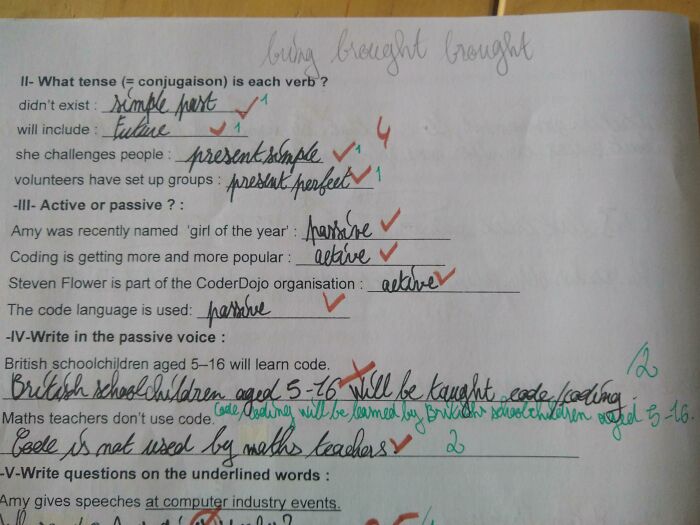 bring brought brought
II- What tense (= conjugaison) is each verb ?
didn't exist : simple past ✓ 1
will include : Future ✓ 1
4
she challenges people : present simple ✓ 1
volunteers have set up groups : present perfect ✓ 1
-III- Active or passive ? :
Amy was recently named 'girl of the year' : passive ✓
Coding is getting more and more popular : active ✓
Steven Flower is part of the CoderDojo organisation : active ✓
The code language is used: passive ✓
-IV-Write in the passive voice :
British schoolchildren aged 5–16 will learn code.
/2
British schoolchildren aged 5-16 will be taught code/coding.
Code/coding will be learned by British schoolchildren aged 5-16.
Maths teachers don't use code.
Code is not used by maths teachers ✓ 2
-V-Write questions on the underlined words :
Amy gives speeches at computer industry events.